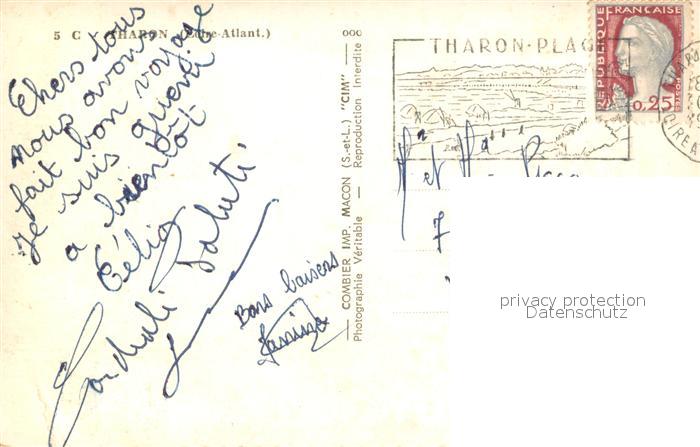 5 C THARON (Loire-Atlant.)
Chers tous
nous avons
fait bon voyage
Je suis guérie
a bientôt
Célia
Cordiali Saluti
Bons baisers
COMBIER IMP. MACON (S.-et-L.) "CIM"
Photographie Véritable - Reproduction Interdite
THARON-PLAG
REPUBLIQUE FRANÇAISE
0,25
et
7
privacy protection
Datenschutz